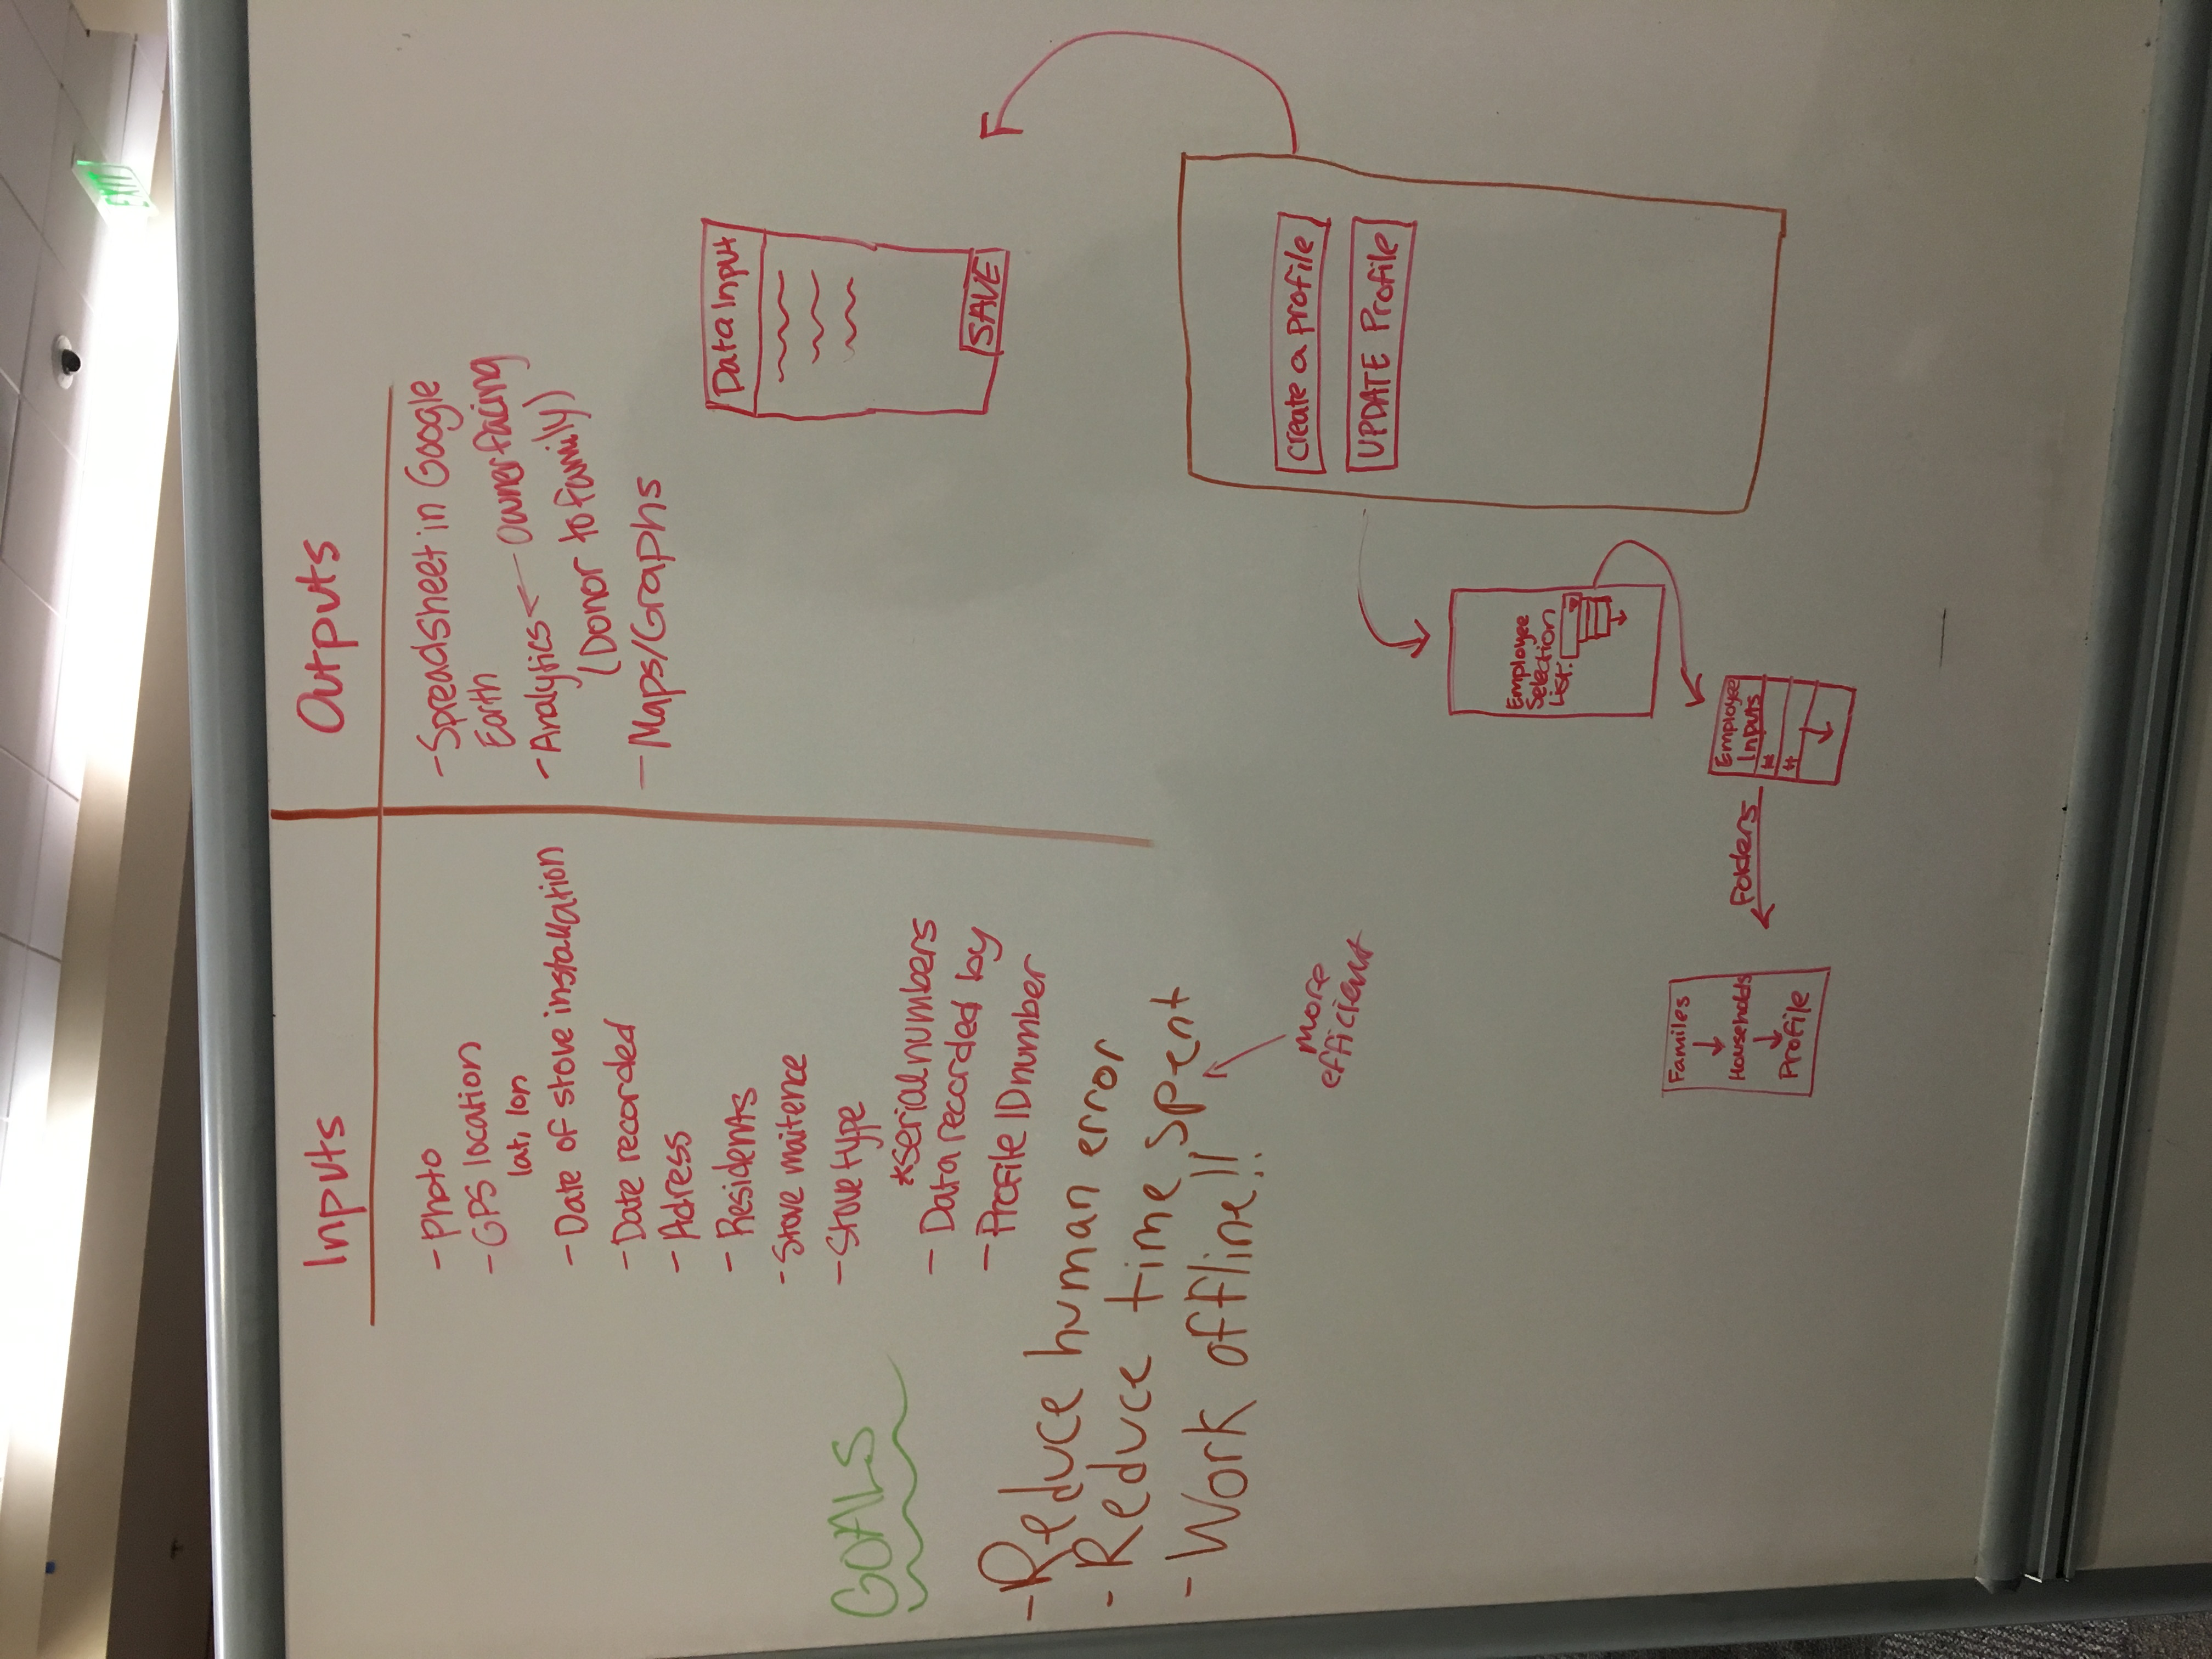 EXIT
Inputs
- Photo
- GPS location
lat, lon
- Date of stove installation
- Date recorded
- Adress
- Residents
- Stove maitence
- Stove type
*serial numbers
- Data recorded by
- Profile ID number
Outputs
- Spreadsheet in Google
Earth
- Analytics ← Owner facing
(Donor to family)
- Maps/Graphs
GOALS
- Reduce human error
- Reduce time spent
- Work offline!!
more
efficient
Data Input
SAVE
Create a profile
UPDATE Profile
Employee
Selection
List:
Employee
Inputs
#
#
Folders
Familes
↓
Households
↓
Profile